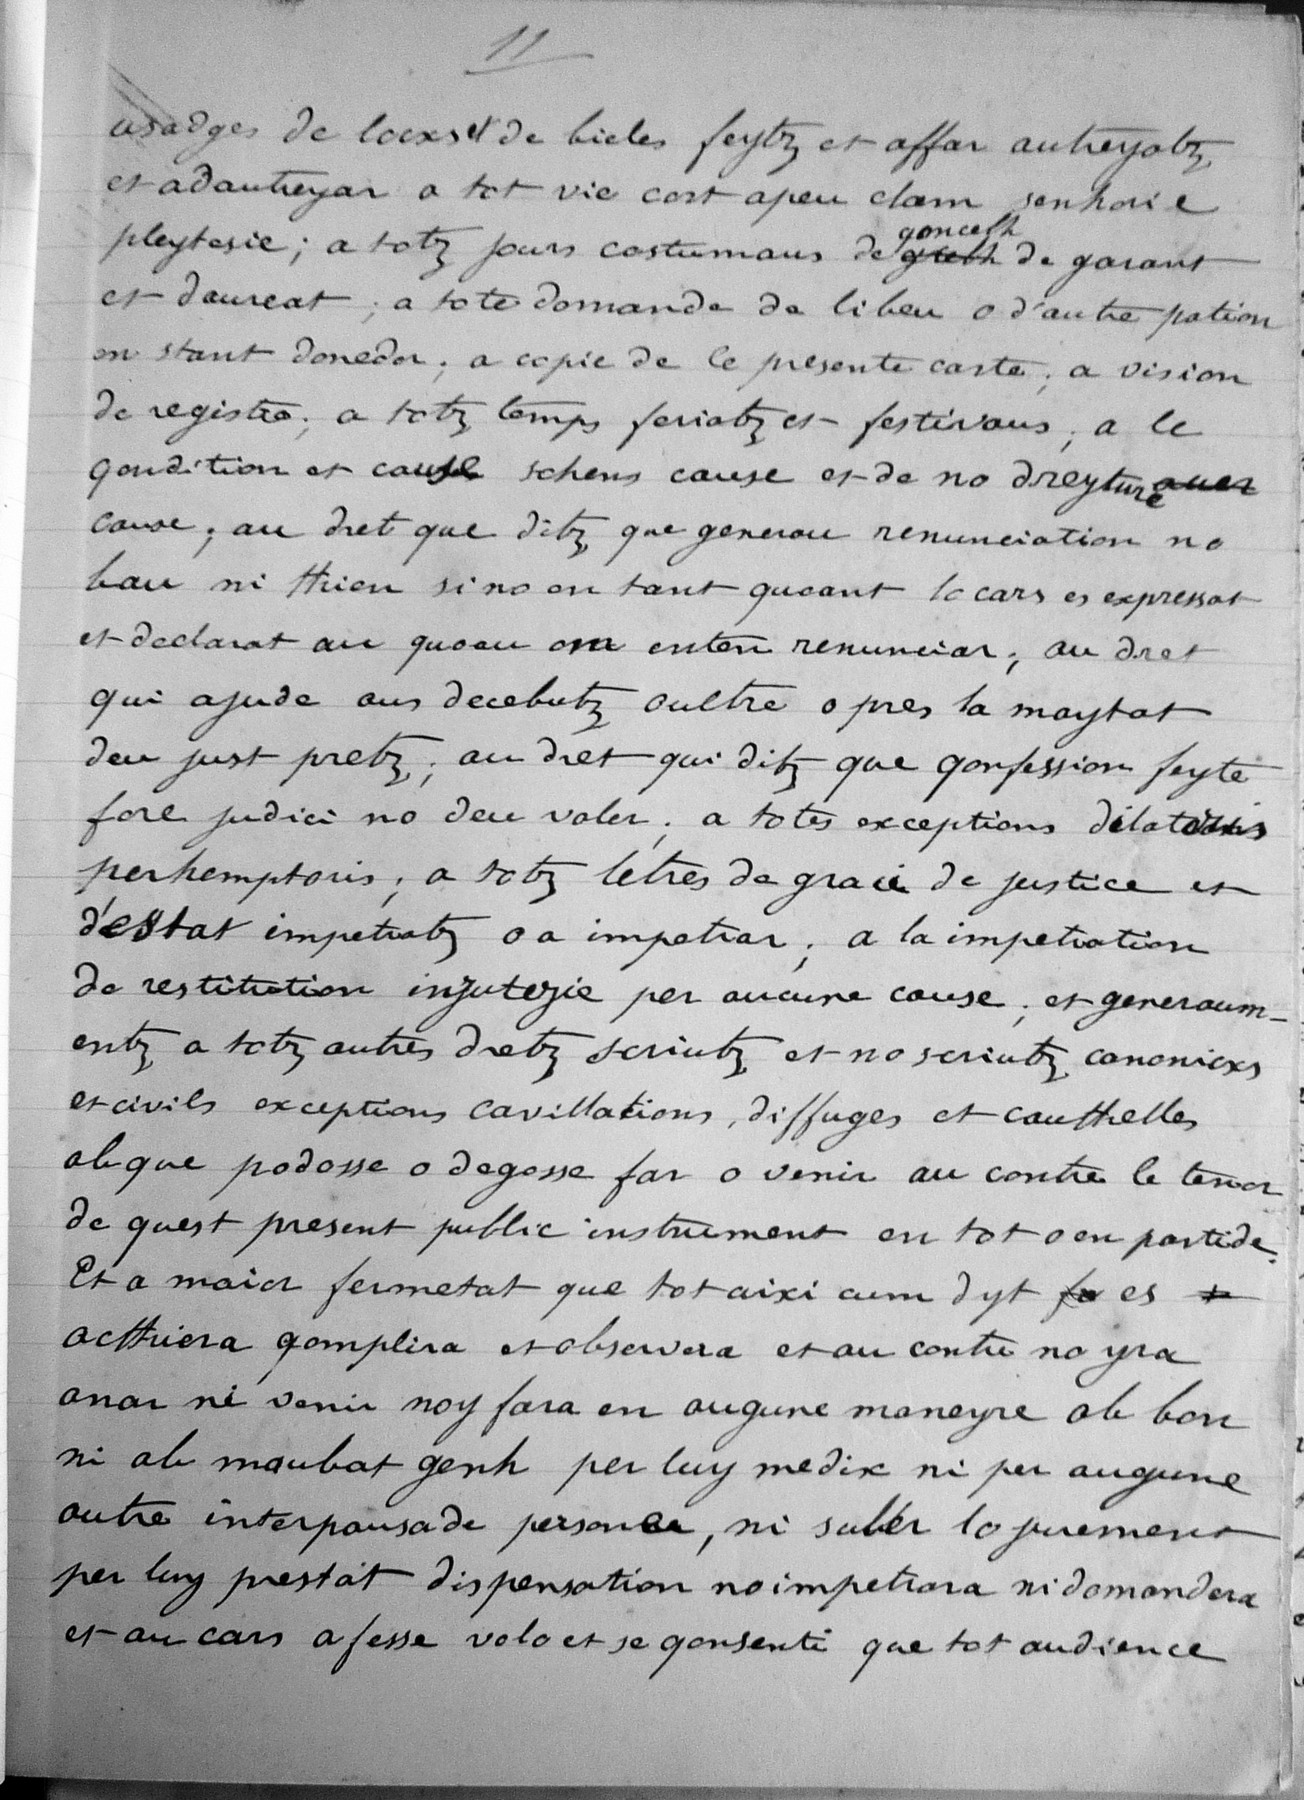 11
usadges de locxs et de bieles feytz et affar autreyatz
et adautreyar a tot vic cort apeu clam senhorie
pleytesie ; a totz jours costumaus de goncelh de garant
et daureat ; a tote domande de libeu o d'autre pation
en stant donedor ; a copie de le presente carte ; a vision
de registre ; a totz temps feriatz et festivaus ; a le
gondition et cause schens cause et de no dreyture
cause ; au dret que ditz que generau renunciation no
bau ni thien si no en tant quoant lo cars es expressat
et declarat au quoau om enten renunciar ; au dret
qui ajude aus decebutz oultre o pres la maytat
deu just pretz ; au dret qui ditz que gonfession feyte
fore judici no deu valer ; a totes exceptions dilatoris
perhemptoris ; a totz letres de gracie de justice et
d'estat impetratz o a impetrar ; a la impetration
de restitution inzutezie per aucune cause ; et generaum-
entz a totz autres dretz scriutz et no scriutz canonicxs
et civils exceptions cavillations, diffuges et cauthelles
ab que podosse o degosse far o venir au contre le tenor
de quest present public instrument en tot o en partide.
Et a maior fermetat que tot aixi cum dyt es
acthiera gomplira et observera et au contre no yra
anar ni venir noy fara en augune maneyre ab bon
ni ab maubat genh per luy medix ni per augune
autre interpausade persone, ni suber lo jurement
per luy prestat dispensation no impetrara ni domandera
et au cars a fesse volo et se gonsenti que tot audience